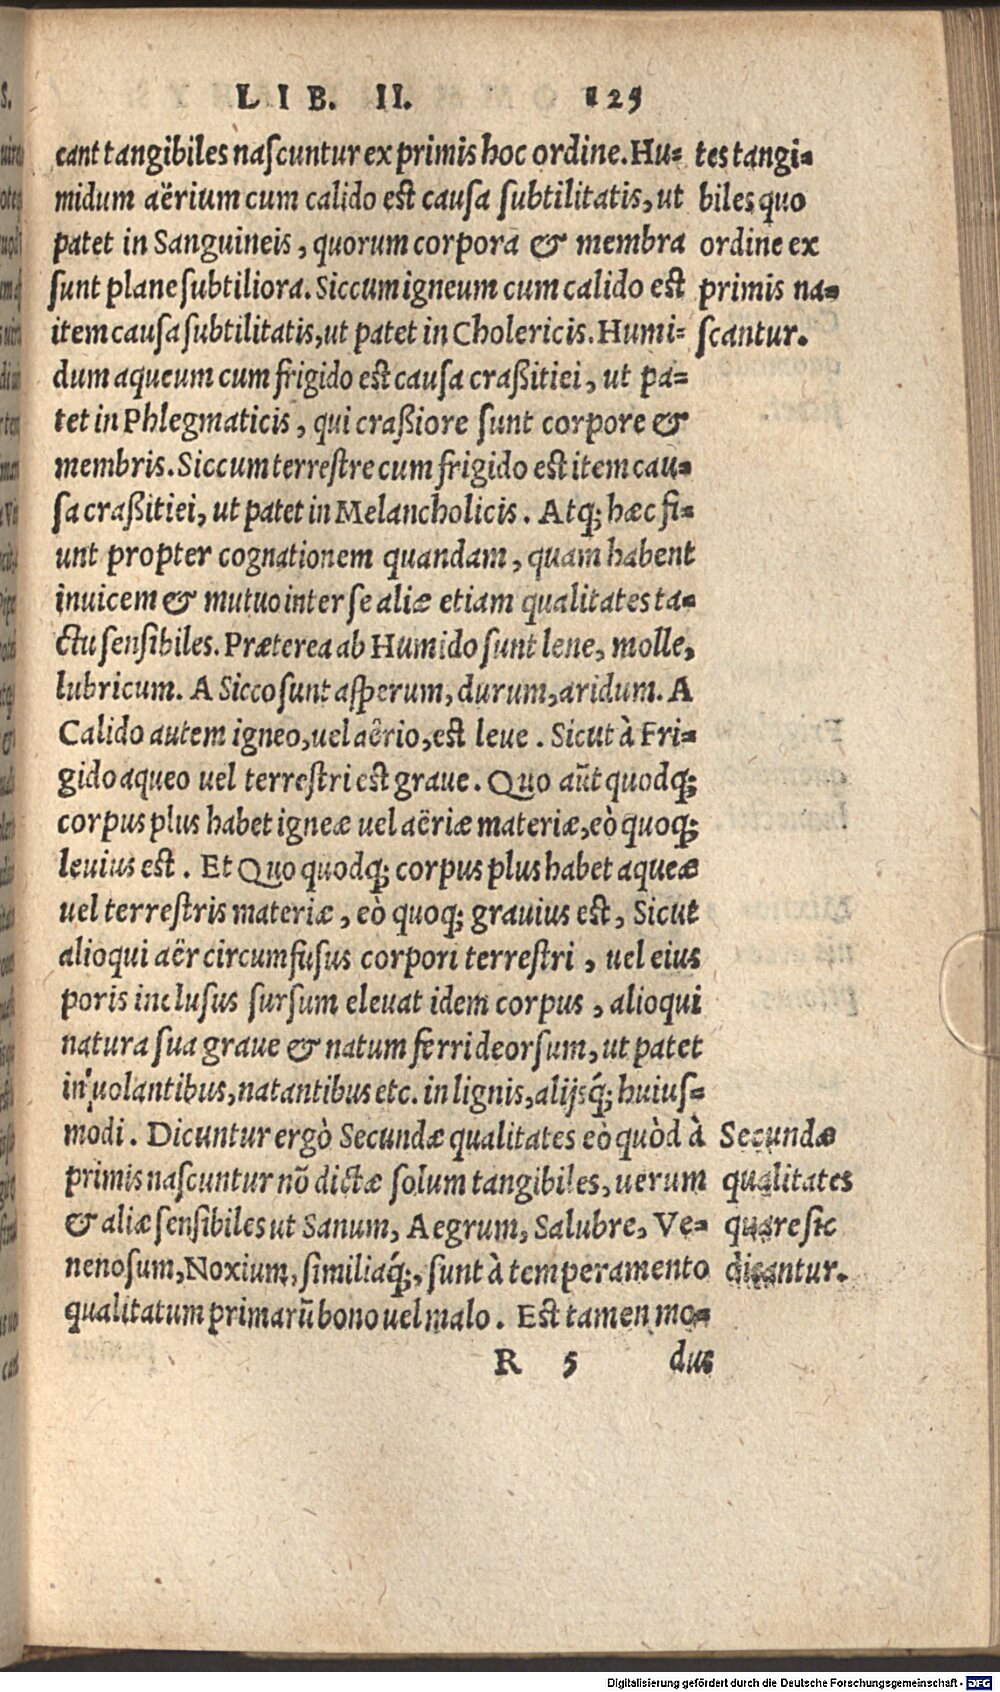 LIB. II. 125
cant tangibiles nascuntur ex primis hoc ordine. Hu-
midum aërium cum calido est causa subtilitatis, ut
patet in Sanguineis, quorum corpora & membra
sunt plane subtiliora. Siccum igneum cum calido est
item causa subtilitatis, ut patet in Cholericis. Humi-
dum aqueum cum frigido est causa craßitiei, ut pa-
tet in Phlegmaticis, qui craßiore sunt corpore &
membris. Siccum terrestre cum frigido est item cau-
sa craßitiei, ut patet in Melancholicis. Atq; hæc fi-
unt propter cognationem quandam, quam habent
inuicem & mutuo inter se aliæ etiam qualitates ta-
ctu sensibiles. Præterea ab Humido sunt lene, molle,
lubricum. A Sicco sunt asperum, durum, aridum. A
Calido autem igneo, uel aërio, est leue. Sicut à Fri-
gido aqueo uel terrestri est graue. Quo aũt quodq;
corpus plus habet igneæ uel aëriæ materiæ, eò quoq;
leuius est. Et Quo quodq; corpus plus habet aqueæ
uel terrestris materiæ, eò quoq; grauius est, Sicut
alioqui aër circumfusus corpori terrestri, uel eius
poris inclusus sursum eleuat idem corpus, alioqui
natura sua graue & natum ferri deorsum, ut patet
in uolantibus, natantibus etc. in lignis, alijsq́; huius-
modi. Dicuntur ergò Secundæ qualitates eò quòd à
primis nascuntur nõ dictæ solum tangibiles, uerum
& aliæ sensibiles ut Sanum, Aegrum, Salubre, Ve-
nenosum, Noxium, similiaq́;, sunt à temperamento
qualitatum primarũ bono uel malo. Est tamen mo-
R 5 dus
tes tangi-
biles quo
ordine ex
primis na-
scantur.
Secundæ
qualitates
quare sic
dicantur.
Digitalisierung gefördert durch die Deutsche Forschungsgemeinschaft - DFG